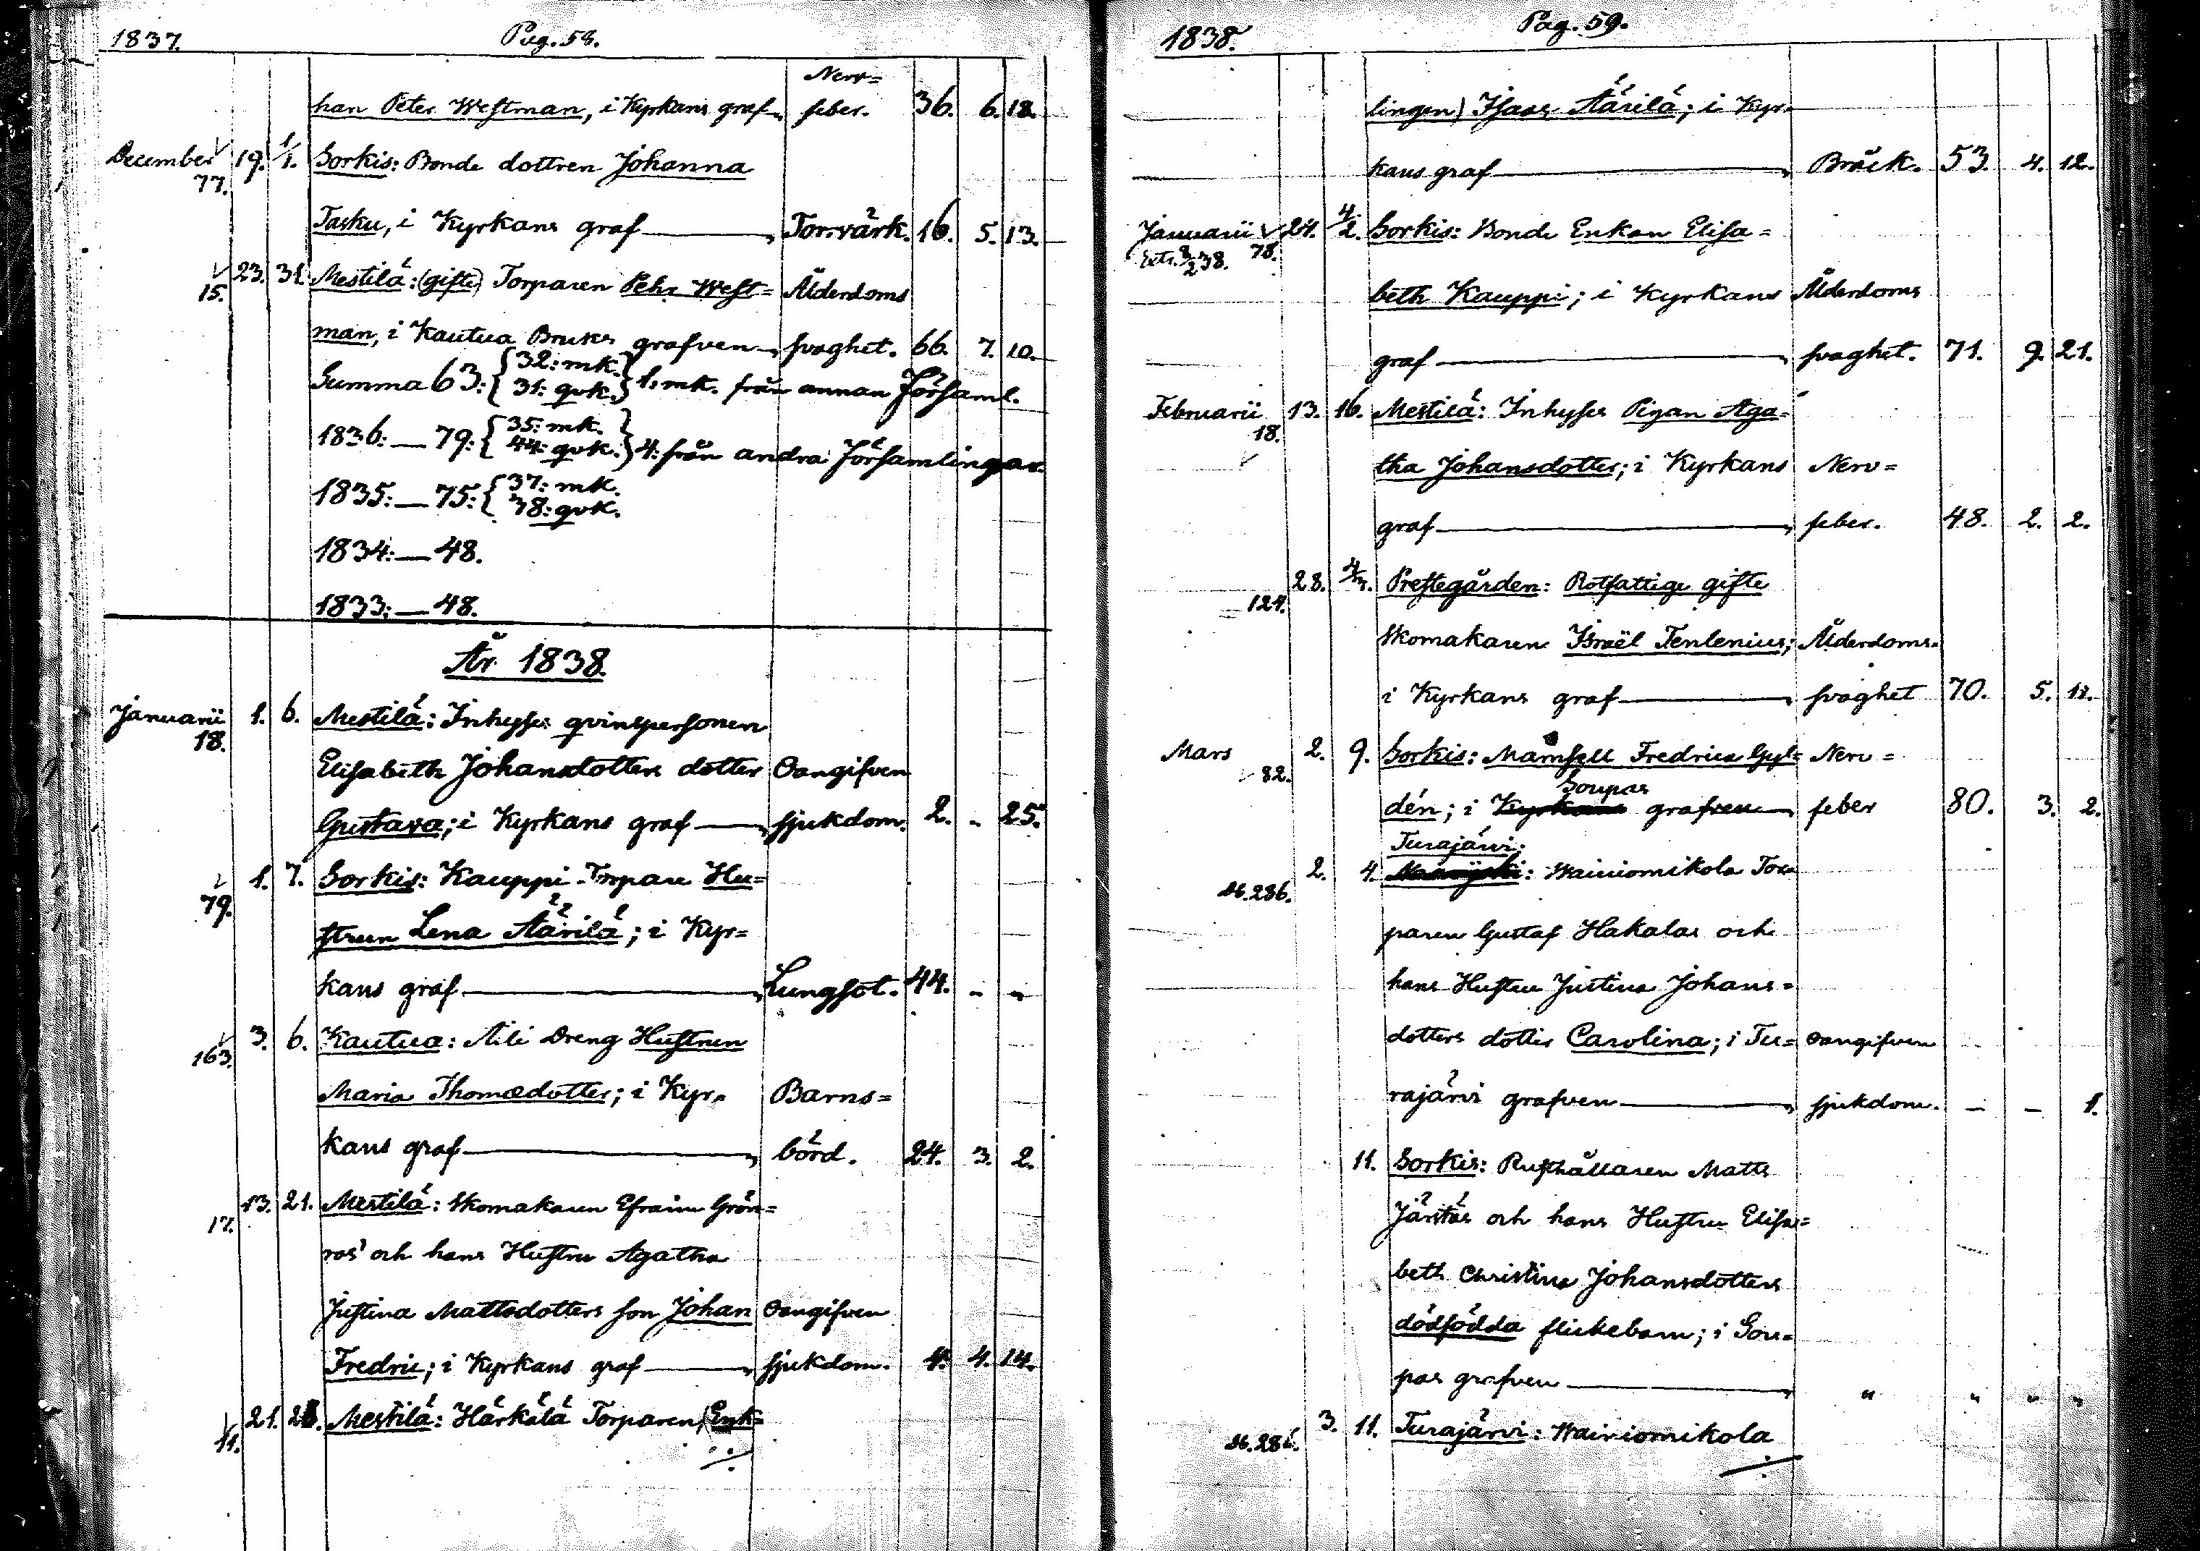 1837. Pag. 58.
Nerv=
han Peter Westman, i Kyrkans graf feber. 36. 6. 12.
December 19. 1/1. Sorkis: Bonde dottren Johanna
77.
Tasku, i Kyrkans graf Torrvärk. 16. 5. 13.
23. 31. Mestilä: (gifte) Torparen Pehr West= Ålderdoms
15.
man, i Kautua Bruks grafven svaghet. 66. 7. 10.
Summa 63: {32: mk. 31: qvk.} 1: mk. från annan Församl.
1836: — 79: {35: mk. 44: qvk.} 4: från andra Församlingar.
1835: — 75: {37: mk. 38: qvk.
1834: — 48.
1833: — 48.
År 1838.
Januarii 1. 6. Mestilä: Inhyses qvinspersonen
18.
Elisabeth Johansdotters dotter Oangifven
Gustava; i Kyrkans graf sjukdom. 2. - 25.
1. 7. Sorkis: Kauppi Torpare Hu=
79.
strun Lena Äärilä; i Kyr=
kans graf Lungsot. 44. - -
3. 6. Kautua: Ali Dreng Hustrun
163.
Maria Thomædotter; i Kyr= Barns=
kans graf börd. 24. 3. 2.
13. 21. Mestilä: Skomakaren Efraim Grön=
17.
ros' och hans Hustru Agatha
Justina Mattsdotters son Johan Oangifven
Fredric; i Kyrkans graf sjukdom. 4. 4. 14.
21. 28. Mestilä: Härkälä Torparen, (Enk=
11.
1838. Pag. 59.
lingen) Isaac Äärilä; i Kyr=
kans graf Bräck. 53. 4. 12.
Januarii 24. 4/2. Sorkis: Bonde Enkan Elisa=
78.
beth Kauppi; i Kyrkans Ålderdoms
graf svaghet. 71. 9. 21.
Februarii 13. 16. Mestilä: Inhyses Pigan Aga=
18.
tha Johansdotter; i Kyrkans Nerv=
graf feber. 48. 2. 2.
28. 4/3. Prestegården: Rotfattige gifte
124.
Skomakaren Israël Tenlenius; Ålderdoms=
i Kyrkans graf svaghet 70. 5. 11.
Mars 2. 9. Sorkis: Mamsell Fredrica Gyl= Nerv=
82.
Soupas
dén; i Kyrkans grafven feber 80. 3. 2.
Turajärvi:
2. 4. Wainiomikola Tor=
Sb. 286.
paren Gustaf Hakalas och
hans Hustru Justina Johans=
dotters dotter Carolina; i Tu= Oangifven
rajärvi grafven sjukdom. - - 1.
11. Sorkis: Rusthållaren Matts
Jäntäs och hans Hustru Elisa=
beth Christina Johansdotters
dödfödda flickebarn; i Sou=
pas grafven " " " "
3. 11. Turajärvi: Wainiomikola